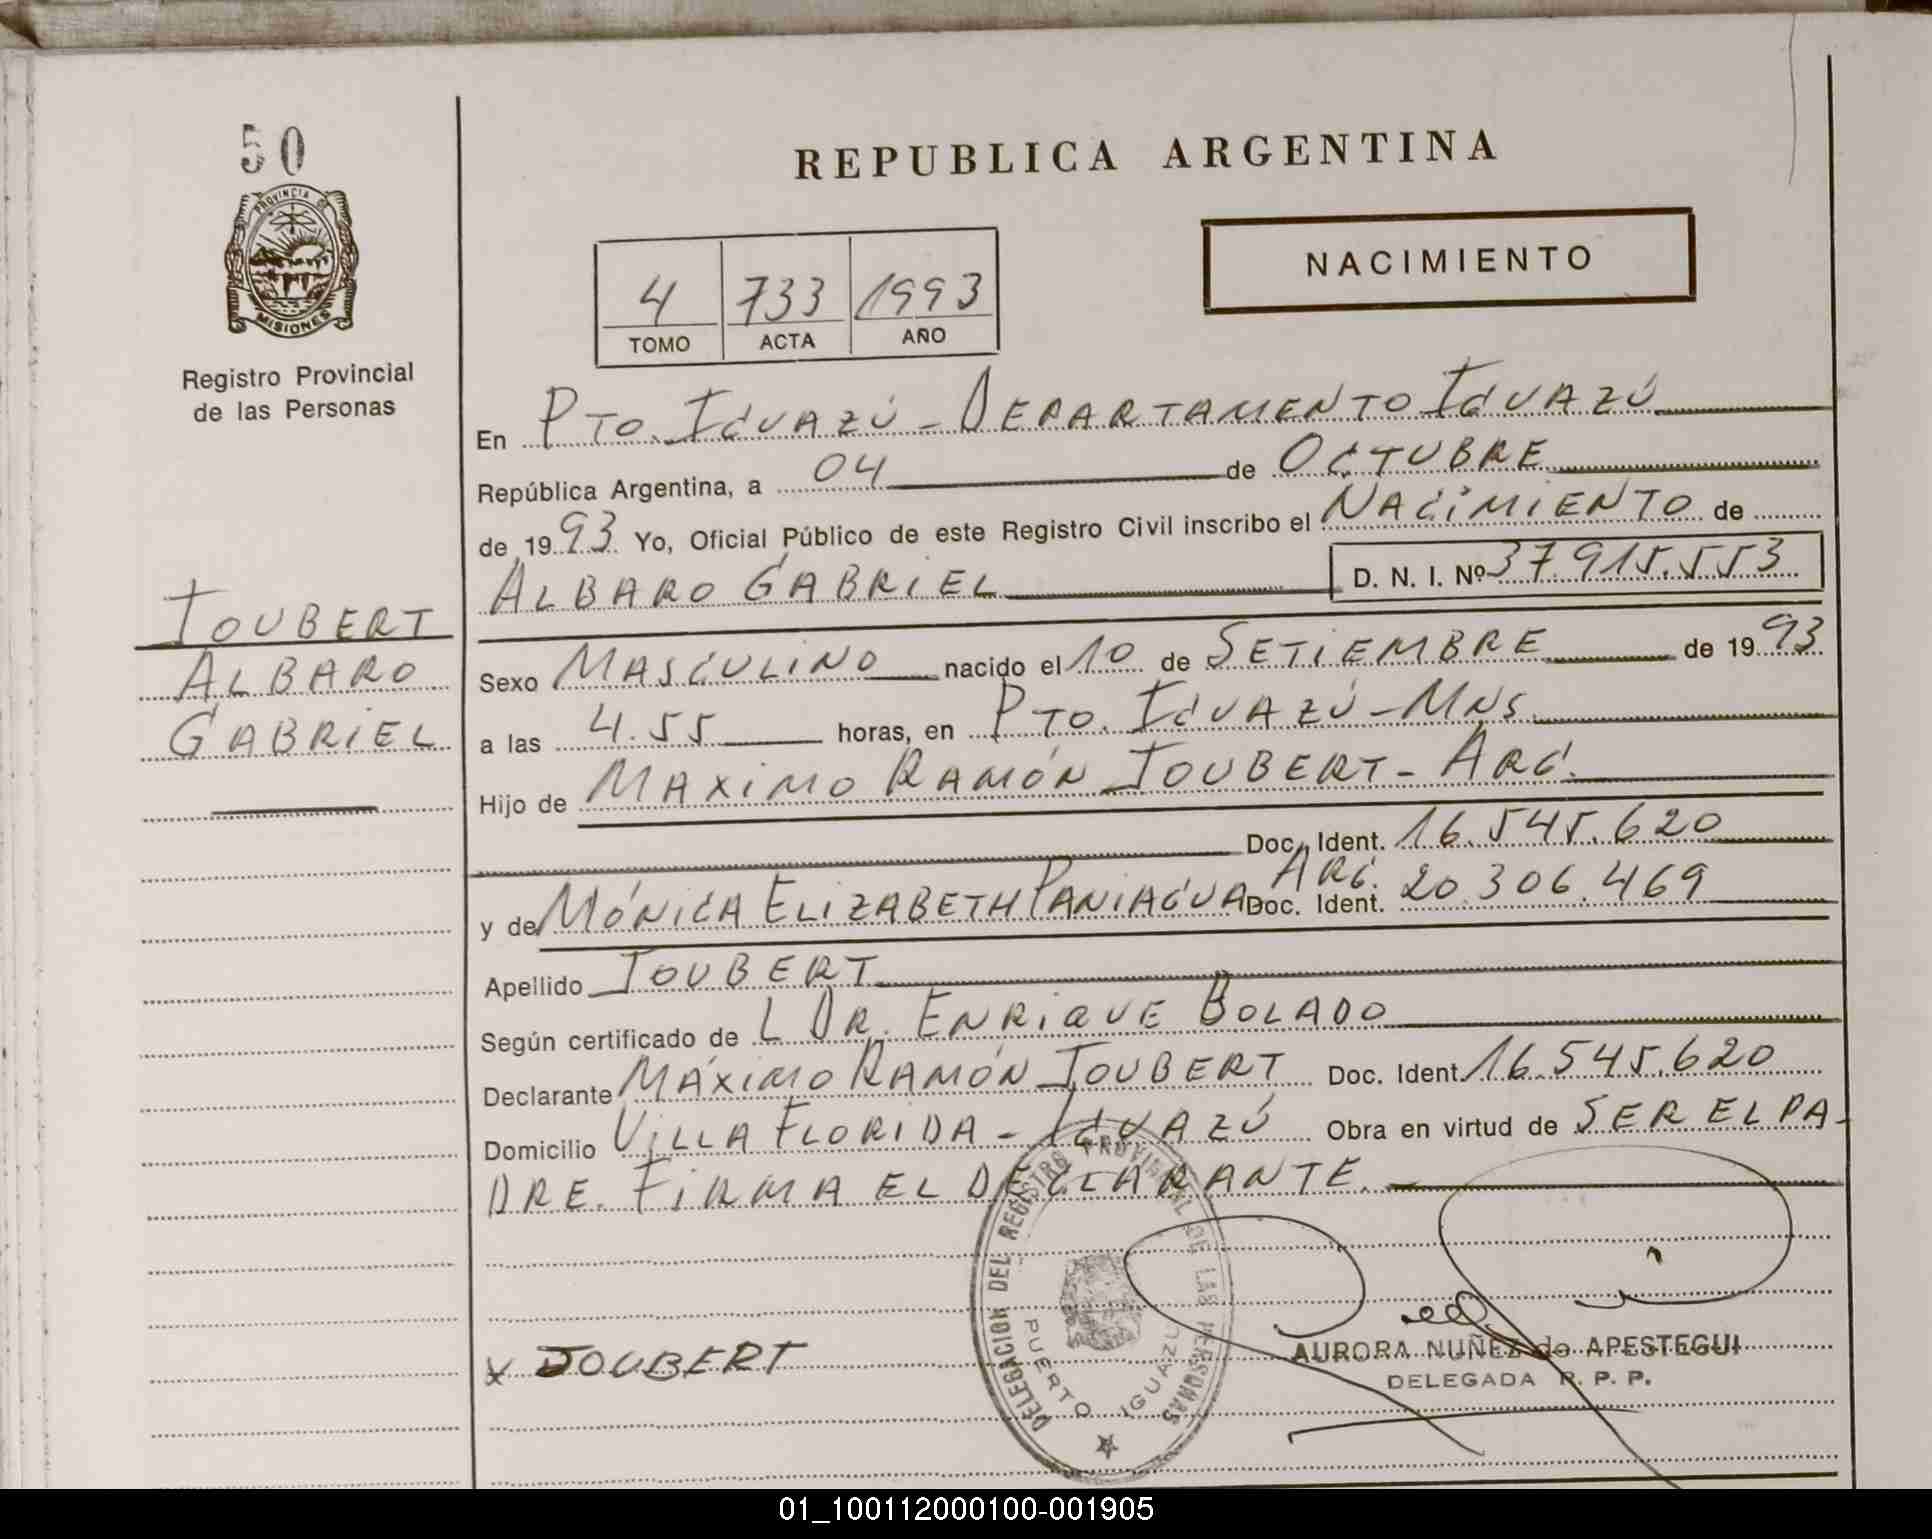 50
PROVINCIA DE
MISIONES
Registro Provincial
de las Personas
REPUBLICA ARGENTINA
NACIMIENTO
4 733 1993
TOMO ACTA AÑO
En PTO. IGUAZÚ - DEPARTAMENTO IGUAZÚ
República Argentina, a 04 de OCTUBRE
de 1993 Yo, Oficial Público de este Registro Civil inscribo el NACIMIENTO de
ALBARO GABRIEL D. N. I. Nº 37.915.553
JOUBERT
ALBARO
GABRIEL
Sexo MASCULINO nacido el 10 de SETIEMBRE de 1993
a las 4.55 horas, en PTO. IGUAZÚ - MNS.
Hijo de MAXIMO RAMÓN JOUBERT - ARG.
Doc. Ident. 16.545.620
y de MÓNICA ELIZABETH PANIAGUA ARG. Doc. Ident. 20.306.469
Apellido JOUBERT
Según certificado de L DR. ENRIQUE BOLADO
Declarante MÁXIMO RAMÓN JOUBERT Doc. Ident. 16.545.620
Domicilio VILLA FLORIDA - IGUAZÚ Obra en virtud de SER EL PA-
DRE. FIRMA EL DECLARANTE. -
DELEGACION DEL REGISTRO PROVINCIAL DE LAS PERSONAS
PUERTO IGUAZU
x JOUBERT
AURORA NUÑEZ de APESTEGUI
DELEGADA R. P. P.
01_100112000100-001905